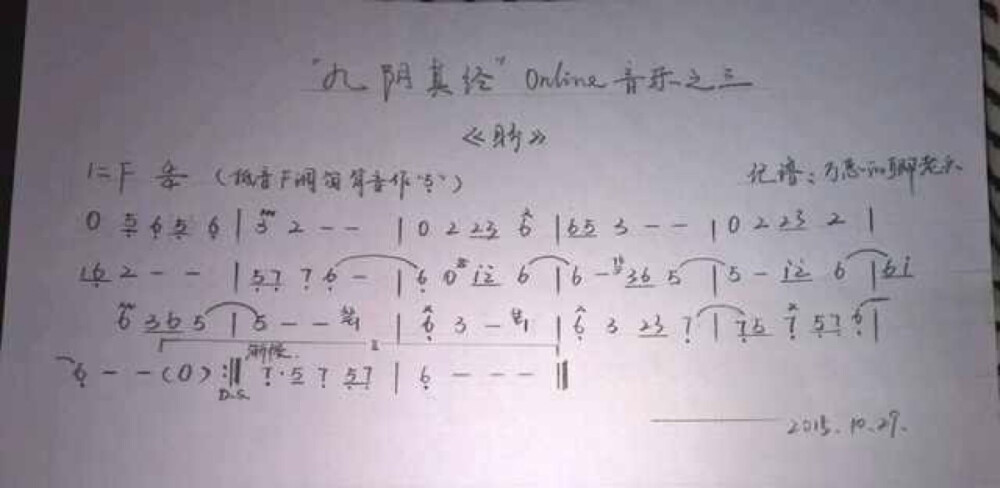 "九阴真经" Online 音乐之三
1=F 4/4 (低音F调筒音作"5") 记谱:万恶的脚老头
0 5 6 5 6 | 3 2 - - | 0 2 23 6 | 65 3 - - | 0 2 23 2 |
16 2 - - | 57 7 6 - | 6 0 12 6 | 6 - 36 5 | 5 - 12 6 | 61
6 36 5 | 5 - - 1 | 6 3 - 1 | 6 3 23 7 | 75 7 57 6 |
渐慢.
6 - - (0) :‖ 7·5 7 57 | 6 - - - ‖
D.S.
2015.10.27.